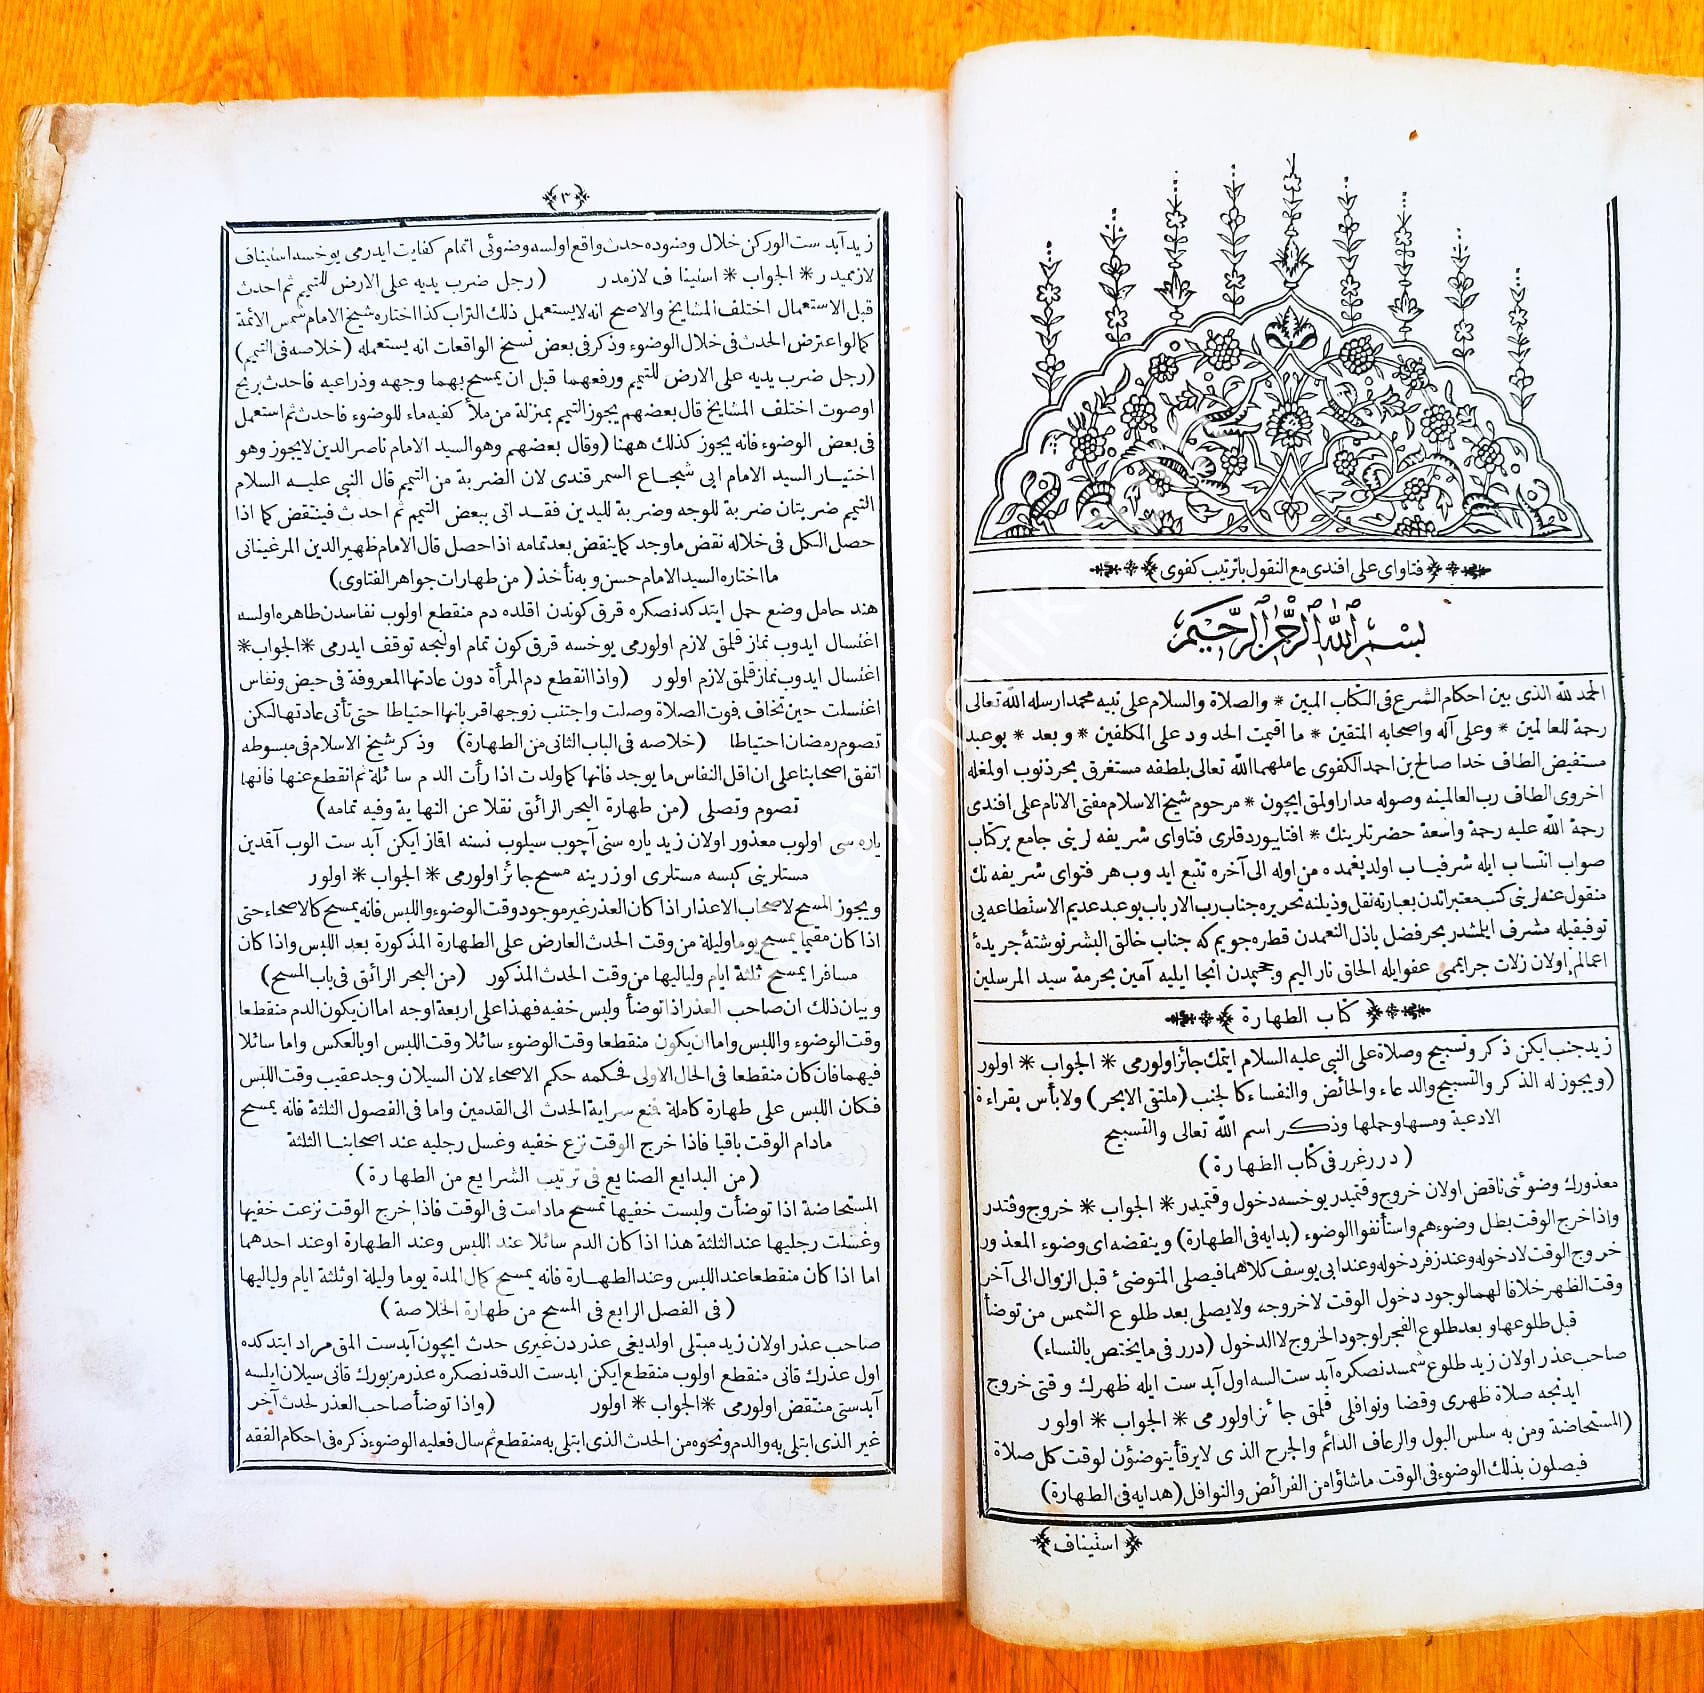 ﴿ فتاوای علی افندی مع النقول باترتیب كفوی ﴾
بسم الله الرحمن الرحيم
الحمد لله الذی بین احكام الشرع فی الكتاب المبین * والصلاة والسلام علی نبیه محمد ارسله الله تعالی
رحمة للعالمین * وعلی آله واصحابه المتقین * ما اقیمت الحدود علی المكلفین * وبعد * بو عبد
مستفیض الطاف خدا صالح بن احمد الكفوی عاملهما الله تعالی بلطفه مستغرق بحر ذنوب اولمغله
اخروی الطاف رب العالمینه وصوله مدار اولمق ایچون * مرحوم شیخ الاسلام مفتی الانام علی افندی
رحمة الله علیه رحمة واسعة حضرتلرینك * افتا ییوردقلری فتاوای شریفه لرینی جامع بر كتاب
صواب انتساب ایله شرفیاب اولدیغمده من اوله الی آخره تتبع ایدوب هر فتوای شریفه نك
منقول عنه لرینی كتب معتبراتدن بعبارته نقل وذیلنه تحریره جناب رب الارباب بو عبد عدیم الاستطاعه یی
توفیقیله مشرف ایلمشدر بحر فضل باذل النعمدن قطره جویم كه جناب خالق البشر نوشتهٔ جریدهٔ
اعمالم اولان زلات جرایممی عفوایله الحاق نار الیم وجحیمدن انجا ایلیه آمین بحرمة سید المرسلین
﴿ كتاب الطهارة ﴾
زید جنب ایكن ذكر وتسبیح وصلاة علی النبی علیه السلام ایتمك جائز اولورمی * الجواب * اولور
(ویجوز له الذكر والتسبیح والدعاء والحائض والنفساء كالجنب (ملتقی الابحر) ولا بأس بقراءة
الادعیة ومسها وحملها وذكر اسم الله تعالی والتسبیح
(درر غرر فی كتاب الطهارة)
معذورك وضوئنی ناقض اولان خروج وقتمیدر یوخسه دخول وقتمیدر * الجواب * خروج وقتدر
واذا خرج الوقت بطل وضوءهم واستأنفوا الوضوء (بدایه فی الطهارة) وینقضه ای وضوء المعذور
خروج الوقت لا دخوله وعند زفر دخوله وعند ابی یوسف كلاهما فیصلی المتوضئ قبل الزوال الی آخر
وقت الظهر خلافا لهما لوجود دخول الوقت لا خروجه ولا یصلی بعد طلوع الشمس من توضأ
قبل طلوعها وبعد طلوع الفجر لوجود الخروج لا الدخول (درر فی ما یختص بالنساء)
صاحب عذر اولان زید طلوع شمسدنصكره آبدست السه اول آبدست ایله ظهرك وقتی خروج
ایدنجه صلاة ظهری وقضا ونوافلی قلمق جائز اولورمی * الجواب * اولور
(المستحاضة ومن به سلس البول والرعاف الدائم والجرح الذی لا یرقأ یتوضؤن لوقت كل صلاة
فیصلون بذلك الوضوء فی الوقت ما شاؤا من الفرائض والنوافل (هدایه فی الطهارة)
﴿ استیناف ﴾
﴿٣﴾
زید آبدست الوركن خلال وضوده حدث واقع اولسه وضوئی اتمام كفایت ایدرمی یوخسه استیناف
لازمیدر * الجواب * استیناف لازمدر (رجل ضرب یدیه علی الارض للتیمم ثم احدث
قبل الاستعمال اختلف المشایخ والاصح انه لا یستعمل ذلك التراب كذا اختاره شیخ الامام شمس الائمة
كمالو اعترض الحدث فی خلال الوضوء وذكر فی بعض نسخ الواقعات انه یستعمله (خلاصه فی التیمم)
(رجل ضرب یدیه علی الارض للتیمم ورفعهما قبل ان یمسح بهما وجهه وذراعیه فاحدث بریح
اوصوت اختلف المشایخ قال بعضهم یجوز التیمم بمنزلة من ملأ كفیه ماء للوضوء فاحدث ثم استعمل
فی بعض الوضوء فانه یجوز كذلك ههنا (وقال بعضهم وهو السید الامام ناصر الدین لا یجوز وهو
اختیار السید الامام ابی شجاع السمرقندی لان الضربة من التیمم قال النبی علیه السلام
التیمم ضربتان ضربة للوجه وضربة للیدین فقد اتی ببعض التیمم ثم احدث فینتقض كما اذا
حصل الكل فی خلاله نقض ما وجد كما ینقض بعد تمامه اذا حصل قال الامام ظهیر الدین المرغینانی
ما اختاره السید الامام حسن وبه نأخذ (من طهارات جواهر الفتاوی)
هند حامل وضع حمل ایتدكدنصكره قرق كوندن اقلده دم منقطع اولوب نفاسدن طاهره اولسه
اغتسال ایدوب نماز قلمق لازم اولورمی یوخسه قرق كون تمام اولنجه توقف ایدرمی * الجواب *
اغتسال ایدوب نماز قلمق لازم اولور (واذا انقطع دم المرأة دون عادتها المعروفة فی حیض ونفاس
اغتسلت حین تخاف فوت الصلاة وصلت واجتنب زوجها قربانها احتیاطا حتی تأتی عادتها لكن
تصوم رمضان احتیاطا (خلاصه فی الباب الثانی من الطهارة) وذكر شیخ الاسلام فی مبسوطه
اتفق اصحابنا علی ان اقل النفاس ما یوجد فانها كما ولدت اذا رأت الدم ساعة ثم انقطع عنها فانها
تصوم وتصلی (من طهارة البحر الرائق نقلا عن النهایة وفیه تمامه)
یاره سی اولوب معذور اولان زید یاره سنی آچوب سیلوب نسنه اقماز ایكن آبدست الوب آقدین
مستلرینی كیسه مستلری اوزرینه مسح جائز اولورمی * الجواب * اولور
ویجوز المسح لاصحاب الاعذار اذا كان العذر غیر موجود وقت الوضوء واللبس فانه یمسح كالاصحاء حتی
اذا كان مقیما یمسح یوما ولیلة من وقت الحدث العارض علی الطهارة المذكورة بعد اللبس واذا كان
مسافرا یمسح ثلثة ایام ولیالیها من وقت الحدث المذكور (من البحر الرائق فی باب المسح)
وبیان ذلك ان صاحب العذر اذا توضأ ولبس خفیه فهذا علی اربعة اوجه اما ان یكون الدم منقطعا
وقت الوضوء واللبس واما ان یكون منقطعا وقت الوضوء سائلا وقت اللبس او بالعكس واما سائلا
فیهما فان كان منقطعا فی الحال الاولی فحكمه حكم الاصحاء لان السیلان وجد عقیب وقت اللبس
فكان اللبس علی طهارة كاملة فمنع سرایة الحدث الی القدمین واما فی الفصول الثلثة فانه یمسح
مادام الوقت باقیا فاذا خرج الوقت نزع خفیه وغسل رجلیه عند اصحابنا الثلثة
(من البدایع الصنایع فی ترتیب الشرایع من الطهارة)
المستحاضة اذا توضأت ولبست خفیها تمسح مادامت فی الوقت فاذا خرج الوقت نزعت خفیها
وغسلت رجلیها عند الثلثة هذا اذا كان الدم سائلا عند اللبس وعند الطهارة اوعند احدهما
اما اذا كان منقطعا عند اللبس وعند الطهارة فانه یمسح كمال المدة یوما ولیلة اوثلثة ایام ولیالیها
(فی الفصل الرابع فی المسح من طهارة الخلاصة)
صاحب عذر اولان زید مبتلی اولدیغی عذردن غیری حدث ایچون آبدست المق مراد ایتدكده
اول عذرك قانی منقطع اولوب منقطع ایكن ابدست الدقدنصكره عذر مزبورك قانی سیلان ایلسه
آبدستی منتقض اولورمی * الجواب * اولور (واذا توضأ صاحب العذر لحدث آخر
غیر الذی ابتلی به والدم ونحوه من الحدث الذی ابتلی به منقطع ثم سال فعلیه الوضوء ذكره فی احكام الفقه